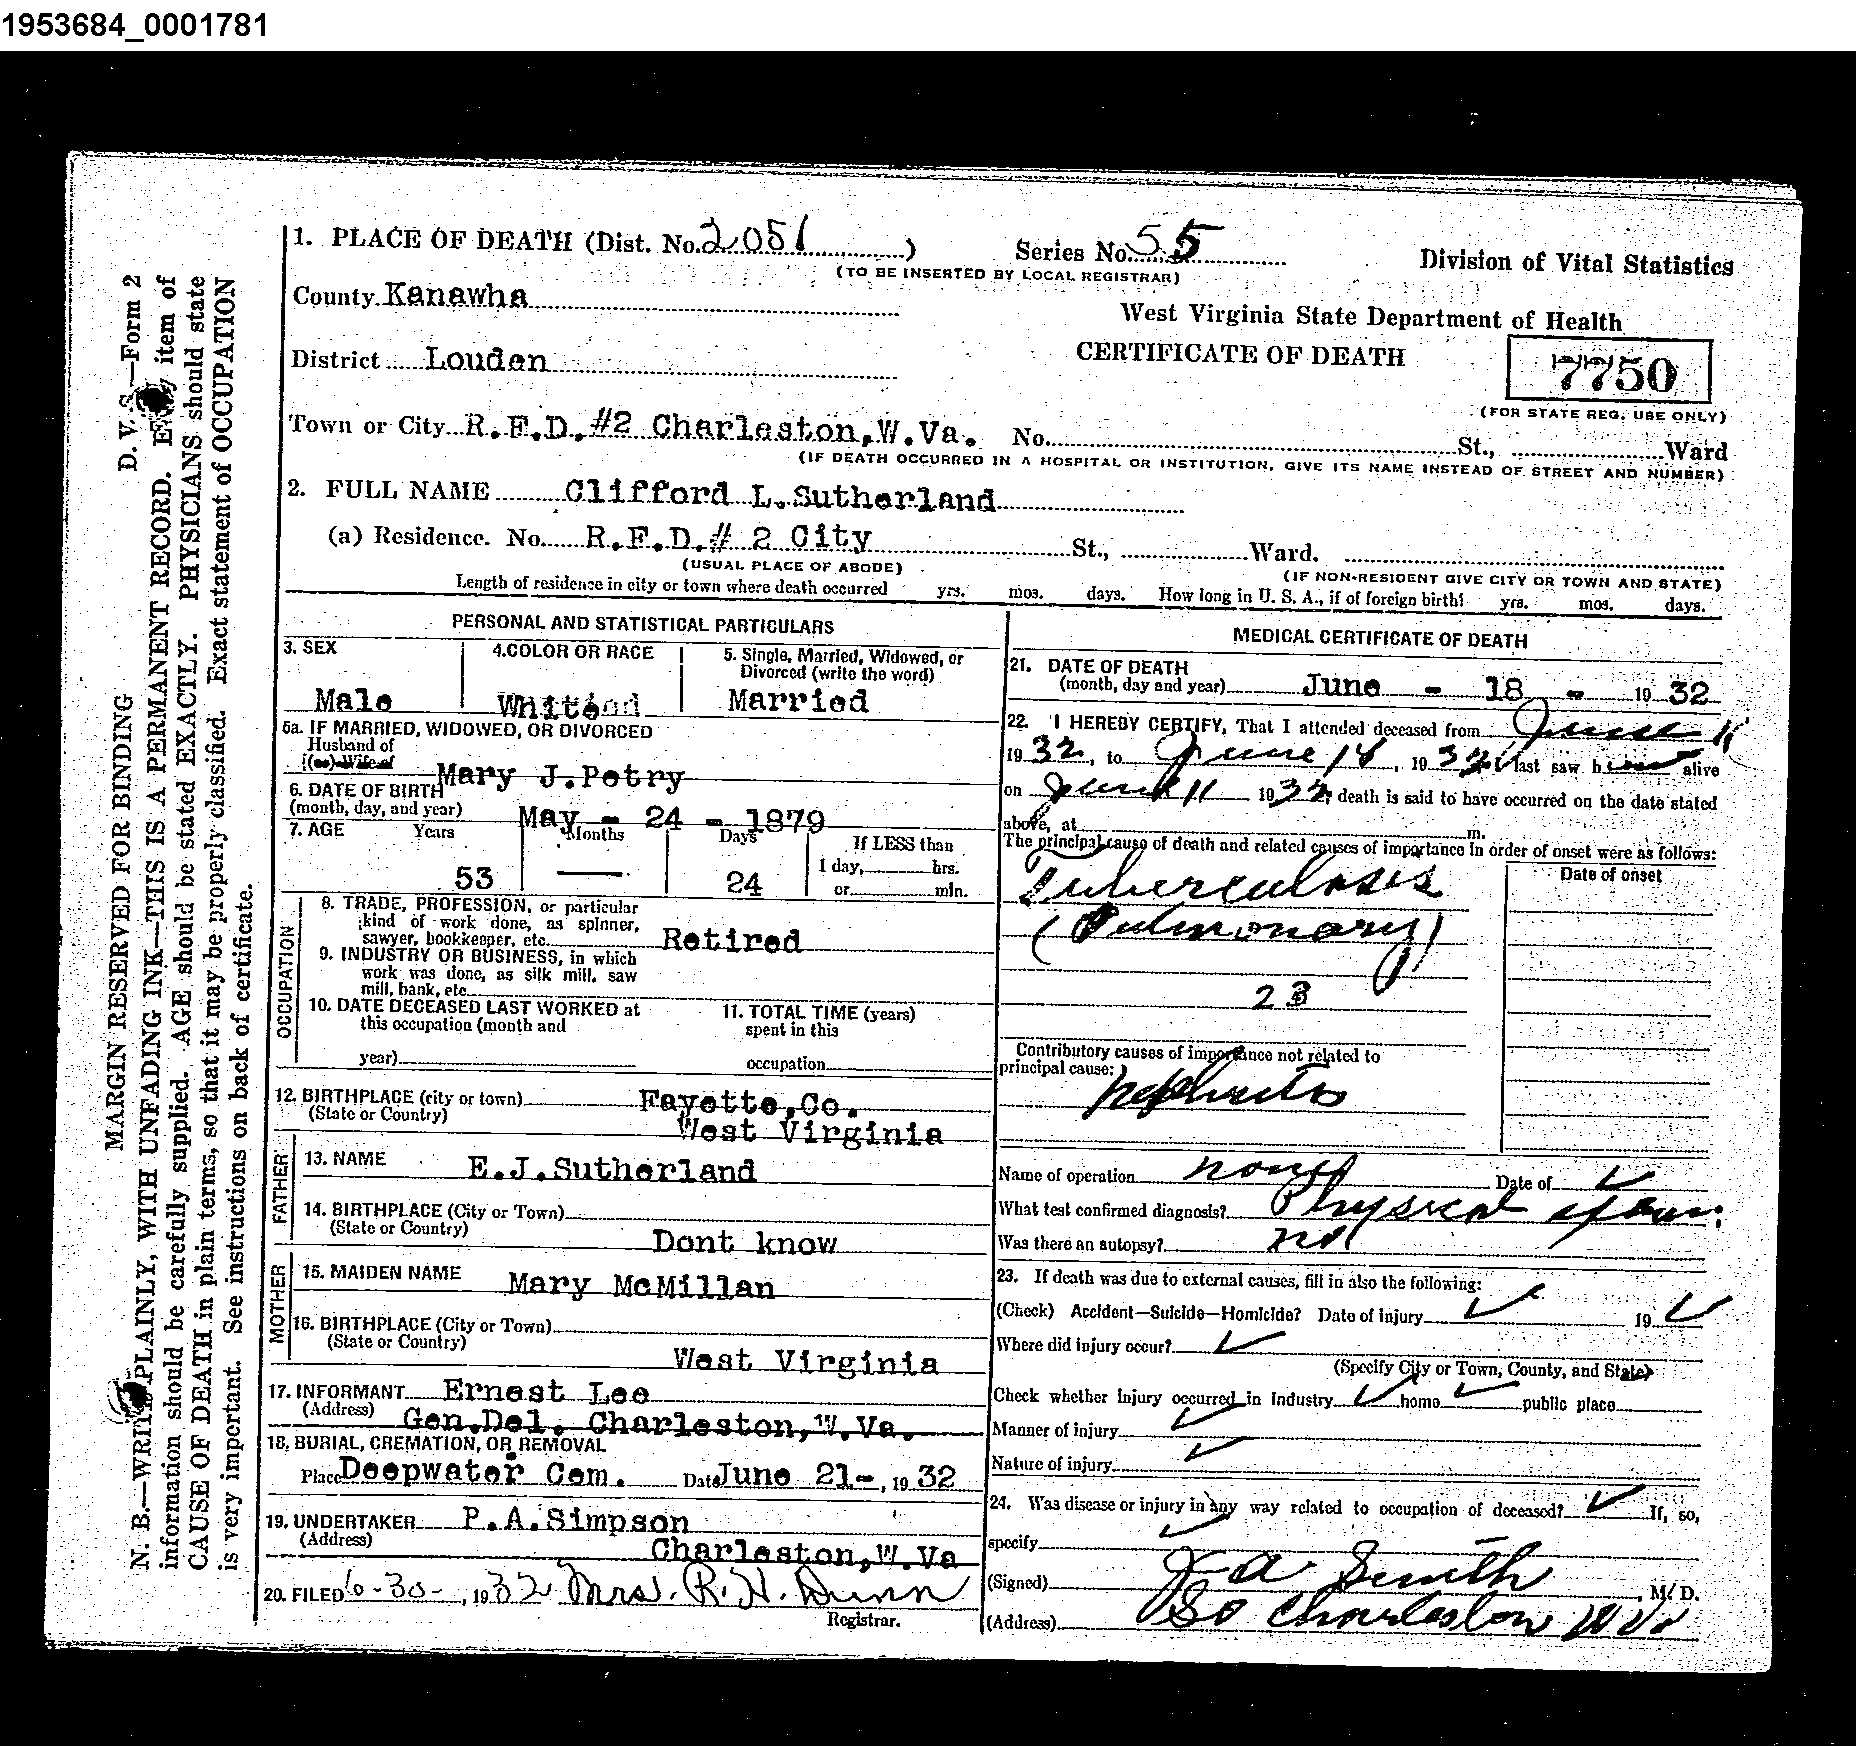 1953684_0001781
1. PLACE OF DEATH (Dist. No. 2051 ) Series No. 55 Division of Vital Statistics
(TO BE INSERTED BY LOCAL REGISTRAR)
County Kanawha West Virginia State Department of Health
District Louden CERTIFICATE OF DEATH 7750
(FOR STATE REG. USE ONLY)
Town or City R.F.D.#2 Charleston,W.Va. No. St., Ward
(IF DEATH OCCURRED IN A HOSPITAL OR INSTITUTION, GIVE ITS NAME INSTEAD OF STREET AND NUMBER)
2. FULL NAME Clifford L.Sutherland
(a) Residence. No. R.F.D.# 2 City St., Ward.
(USUAL PLACE OF ABODE) (IF NON-RESIDENT GIVE CITY OR TOWN AND STATE)
Length of residence in city or town where death occurred yrs. mos. days. How long in U. S. A., if of foreign birth? yrs. mos. days.
PERSONAL AND STATISTICAL PARTICULARS
3. SEX 4. COLOR OR RACE 5. Single, Married, Widowed, or
Divorced (write the word)
Male White Married
5a. IF MARRIED, WIDOWED, OR DIVORCED
Husband of
(or) Wife of Mary J.Petry
6. DATE OF BIRTH
(month, day, and year) May - 24 - 1879
7. AGE Years Months Days If LESS than
1 day, hrs.
53 — 24 or min.
OCCUPATION
8. TRADE, PROFESSION, or particular
kind of work done, as spinner,
sawyer, bookkeeper, etc. Retired
9. INDUSTRY OR BUSINESS, in which
work was done, as silk mill, saw
mill, bank, etc.
10. DATE DECEASED LAST WORKED at 11. TOTAL TIME (years)
this occupation (month and spent in this
year) occupation
12. BIRTHPLACE (city or town) Fayette,Co.
(State or Country) West Virginia
FATHER
13. NAME E.J.Sutherland
14. BIRTHPLACE (City or Town)
(State or Country) Dont know
MOTHER
15. MAIDEN NAME Mary McMillan
16. BIRTHPLACE (City or Town)
(State or Country) West Virginia
17. INFORMANT Ernest Lee
(Address) Gen.Del. Charleston,W.Va.
18. BURIAL, CREMATION, OR REMOVAL
Place Deepwater Cem. Date June 21-, 1932
19. UNDERTAKER P.A.Simpson
(Address) Charleston,W.Va
20. FILED 6-30-, 1932 Mrs. R. H. Dunn
Registrar.
MEDICAL CERTIFICATE OF DEATH
21. DATE OF DEATH
(month, day and year) June - 18 - 1932
22. I HEREBY CERTIFY, That I attended deceased from June 11
1932, to June 18, 1932 I last saw him alive
on June 11 1932, death is said to have occurred on the date stated
above, at m.
The principal cause of death and related causes of importance in order of onset were as follows:
Date of onset
Tuberculosis
(Pulmonary)
23
Contributory causes of importance not related to
principal cause:
Nephritis
Name of operation none Date of ✓
What test confirmed diagnosis? Physical exam.
Was there an autopsy? no
23. If death was due to external causes, fill in also the following:
(Check) Accident—Suicide—Homicide? Date of injury ✓ 19 ✓
Where did injury occur? ✓
(Specify City or Town, County, and State)
Check whether injury occurred in industry ✓ home ✓ public place
Manner of injury ✓
Nature of injury ✓
24. Was disease or injury in any way related to occupation of deceased? ✓ If, so,
specify ✓
(Signed) J A Smith, M. D.
(Address) So Charleston W Va
MARGIN RESERVED FOR BINDING D. V. S.—Form 2
N. B.—WRITE PLAINLY, WITH UNFADING INK—THIS IS A PERMANENT RECORD. Every item of
information should be carefully supplied. AGE should be stated EXACTLY. PHYSICIANS should state
CAUSE OF DEATH in plain terms, so that it may be properly classified. Exact statement of OCCUPATION
is very important. See instructions on back of certificate.